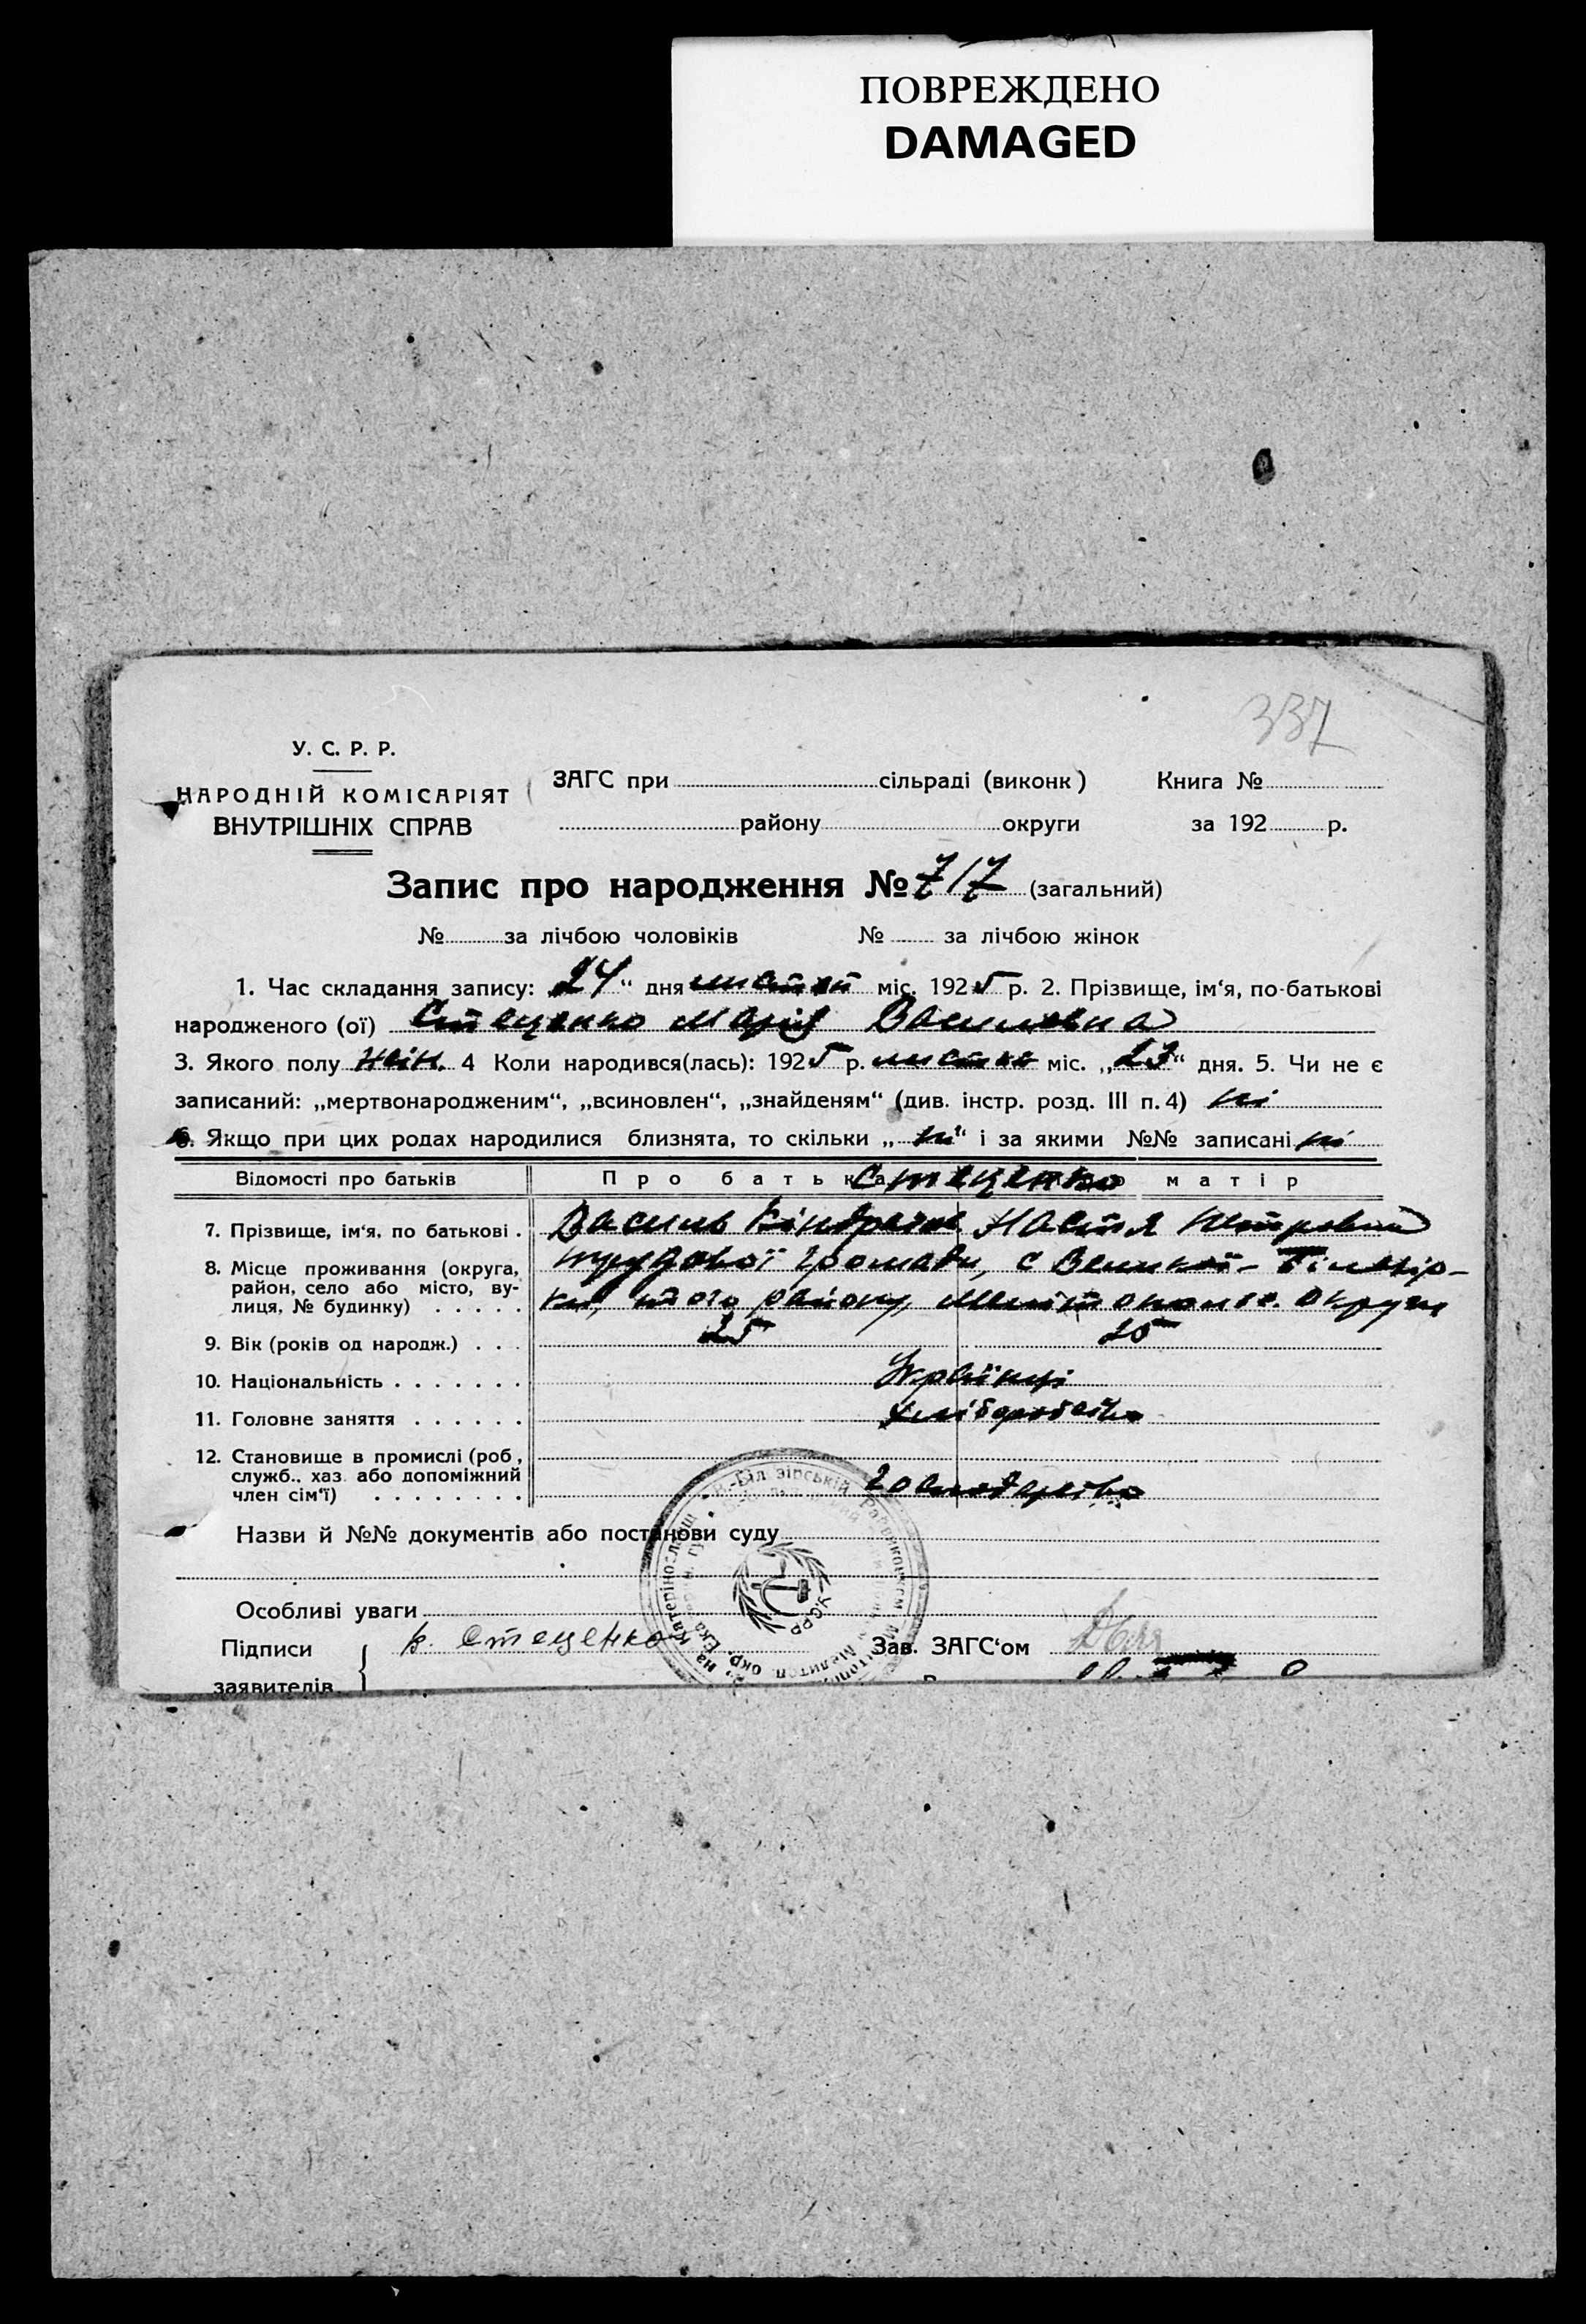 ПОВРЕЖДЕНО
DAMAGED
337
У. С. Р. Р.
НАРОДНІЙ КОМІСАРІЯТ
ВНУТРІШНІХ СПРАВ
ЗАГС при сільраді (виконк) Книга №
району округи за 192 р.
Запис про народження № 717 (загальний)
№ за лічбою чоловіків № за лічбою жінок
1. Час складання запису: „24“ дня листоп міс. 1925 р. 2. Прізвище, ім‘я, по-батькові
народженого (ої) Стеценко Марія Василевна
3. Якого полу жін. 4 Коли народився(лась): 1925 р. міс. „23“ дня. 5. Чи не є
записаний: „мертвонародженим“, „всиновлен“, „знайденям“ (див. інстр. розд. III п. 4) ні
6. Якщо при цих родах народилися близнята, то скільки „ні“ і за якими №№ записані ні
Відомості про батьків Про батька Стеценко матір
7. Прізвище, ім‘я, по батькові . Василь Кіндратов Настя Петровна
8. Місце проживання (округа,
район, село або місто, ву-
лиця, № будинку) . . . . .
трудової громади, с Великої-Білозір-
ки, того району, округи
9. Вік (років од народж.) . . . 25 25
10. Національність . . . . . . . Українці
11. Головне заняття . . . . . . хліборобство
12. Становище в промислі (роб,
служб.. хаз. або допоміжний
член сім‘ї) . . . . . . . . господарство
Назви й №№ документів або постанови суду
Особливі уваги
Підписи к. Стеценко Зав. ЗАГС‘ом
заявителів
УСРР